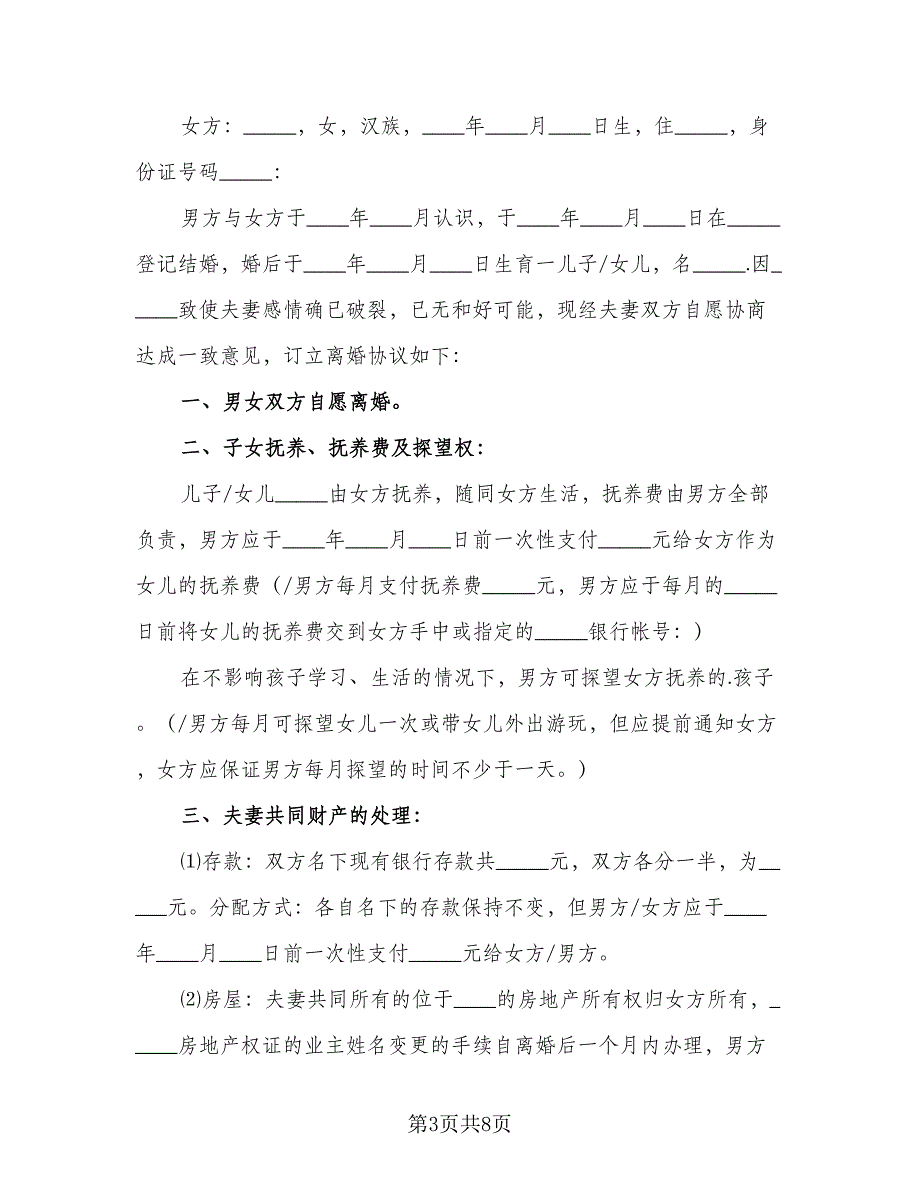 女方：_____，女，汉族，____年____月____日生，住_____，身
份证号码_____：
男方与女方于____年____月认识，于____年____月____日在_____
登记结婚，婚后于____年____月____日生育一儿子/女儿，名_____.因_
____致使夫妻感情确已破裂，已无和好可能，现经夫妻双方自愿协商
达成一致意见，订立离婚协议如下：
一、男女双方自愿离婚。
二、子女抚养、抚养费及探望权：
儿子/女儿_____由女方抚养，随同女方生活，抚养费由男方全部
负责，男方应于____年____月____日前一次性支付_____元给女方作为
女儿的抚养费（/男方每月支付抚养费_____元，男方应于每月的_____
日前将女儿的抚养费交到女方手中或指定的_____银行帐号：）
在不影响孩子学习、生活的情况下，男方可探望女方抚养的.孩子
。（/男方每月可探望女儿一次或带女儿外出游玩，但应提前通知女方
，女方应保证男方每月探望的时间不少于一天。）
三、夫妻共同财产的处理：
⑴存款：双方名下现有银行存款共_____元，双方各分一半，为__
___元。分配方式：各自名下的存款保持不变，但男方/女方应于____
年____月____日前一次性支付_____元给女方/男方。
⑵房屋：夫妻共同所有的位于____的房地产所有权归女方所有，_
____房地产权证的业主姓名变更的手续自离婚后一个月内办理，男方
第3页共8页